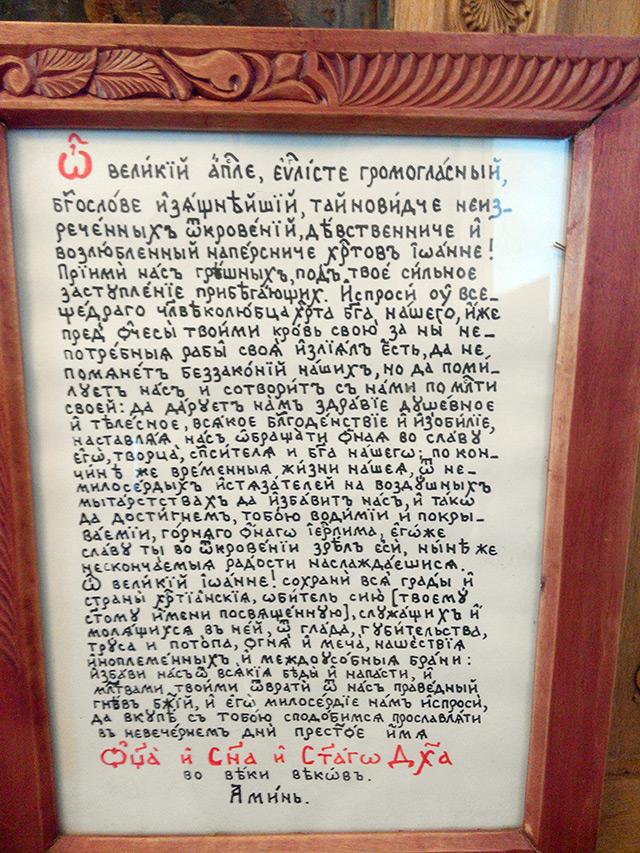 Ѽ вели́кїй а҆п҇ле, є҆ѵ҆лі́сте громогла́сный,
бг҃осло́ве и҆зѧ́щнѣйшїй, тайнови́дче неиз-
рече́нныхъ ѿкрове́нїй, дѣ́вственниче и҆
возлю́бленный напе́рсниче хр҇то́въ і҆ѡа́нне!
Прїими́ на́съ грѣ́шныхъ, по́дъ твое́ си́льное
заступле́нїе прибѣга́ющихъ. И҆спроси́ ᲂу҆ все-
ще́драго чл҃вѣколю́бца хр҇та̀ бг҃а на́шего, и҆́же
пред̾ ѻ҆чесы̀ твои́ми кро́вь свою̀ за ны̀ не-
потрє́бныѧ рабы̑ своѧ̑ и҆злїѧ́лъ є҆́сть, да не
помѧне́тъ беззако́нїй на́шихъ, но да поми́-
луетъ на́съ и҆ сотвори́тъ съ на́ми по мл҇ти
свое́й: да да́руетъ на́мъ здра́вїе душе́вное
и҆ тѣле́сное, всѧ́кое бл҃годе́нствїе и҆ и҆зоби́лїе,
наставлѧ́ѧ на́съ ѡ҆браща́ти ѻ҆́наѧ во сла́ву
є҆гѡ̀, творца̀, сп҇си́телѧ и҆ бг҃а на́шегѡ: по кон-
чи́нѣ же вре́менныѧ жи́зни на́шеѧ, ѿ не-
милосе́рдыхъ и҆стѧза́телей на возду́шныхъ
мыта́рствахъ да и҆зба́витъ на́съ, и҆ та́кѡ
да дости́гнемъ, тобо́ю води́мїи и҆ покры-
ва́емїи, го́рнѧгѡ ѻ҆́нагѡ і҆ерⷭ҇ли́ма, є҆гѡ́же
сла́ву ты̀ во ѿкрове́нїи зрѣ́лъ є҆сѝ, ны́нѣ же
нескончаемыѧ ра́дости наслажда́ешисѧ.
Ѽ вели́кїй і҆ѡа́нне! сохранѝ всѧ̑ гра́ды и҆
страны̑ хр҇тїа̑нскїѧ, ѡ҆би́тель сїю̀ [твоемꙋ̀
ст҃омꙋ и҆́мени посвѧще́ннꙋю], слꙋжа́щихъ и҆
молѧ́щихсѧ въ не́й, ѿ гла́да, гꙋби́тельства,
трꙋ́са и҆ пото́па, ѻ҆гнѧ̀ и҆ меча̀, наше́ствїѧ
и҆ноплеме́нныхъ, и҆ междоусо́бныѧ бра́ни:
и҆зба́ви на́съ ѿ всѧ́кїѧ бѣды̀ и҆ напа́сти, и҆
мл҃твами твои́ми ѿвратѝ ѿ на́съ пра́ведный
гнѣ́въ бж҃їй, и҆ є҆гѡ̀ милосе́рдїе на́мъ и҆спросѝ,
да вкꙋ́пѣ съ тобо́ю сподо́бимсѧ прославлѧ́ти
въ невече́рнемъ днѝ прест҃о́е и҆́мѧ
Ѻ҆ц҃а̀ и҆ Сн҃а и҆ Ст҃а́гѡ Дх҃а
во вѣ́ки вѣкѡ́въ.
А҆ми́нь.